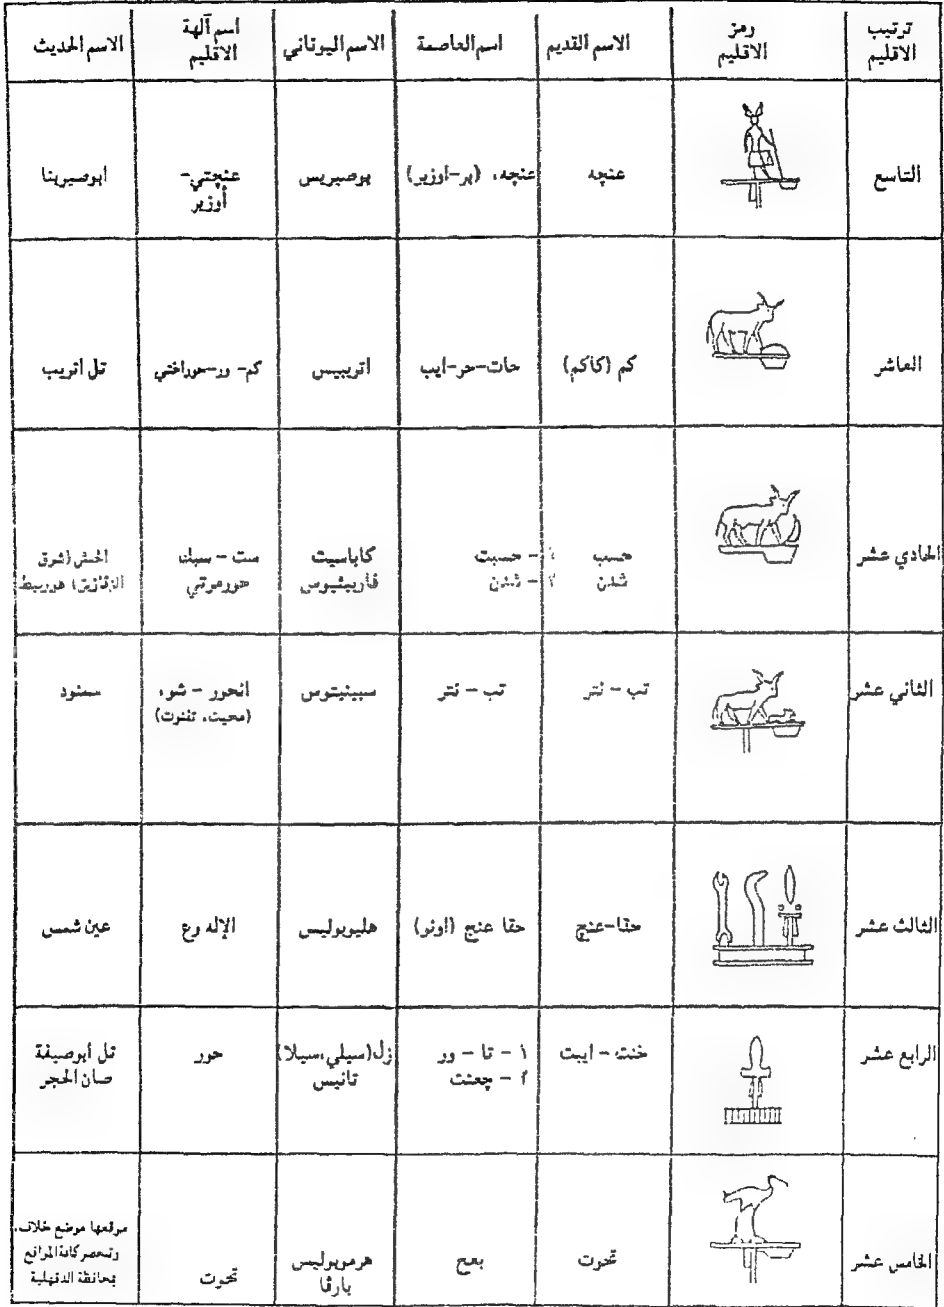 ترتيب الاقليم | رمز الاقليم | الاسم القديم | اسم العاصمة | الاسم اليوناني | اسم آلهة الاقليم | الاسم الحديث
التاسع | عنچه | عنچه، (پر-أوزير) | بوصيريس | عنچتي- أوزير | ابوصيربنا
العاشر | كم (كاكم) | حات-حر-ايب | اتريبيس | كم- ور-حوراختي | تل اتريب
الحادي عشر | حسب | ١ - حسبت | كاباسيت | ست - سبك | الحبش (شرق
شدن | ٢ - شدن | فاريبثيوس | حورمرتي | الزقازيق) هوربيط
الثاني عشر | تب - نتر | تب - نتر | سبينيتوس | انحور - شو، | سمنود
(محيت، تفنوت)
الثالث عشر | حقا-عنچ | حقا عنج (اونو) | هليوبوليس | الإله رع | عين شمس
الرابع عشر | خنت - ايبت | ١ - تا - ور | زل (سيلي، سيلا) | حور | تل أبوصيفة
٢ - چعنت | تانيس | صان الحجر
الخامس عشر | تحوت | بعح | هرموبوليس بارڤا | تحوت | موقعها موضع خلاف،
وتنحصر كافة المواقع
بمحافظة الدقهلية